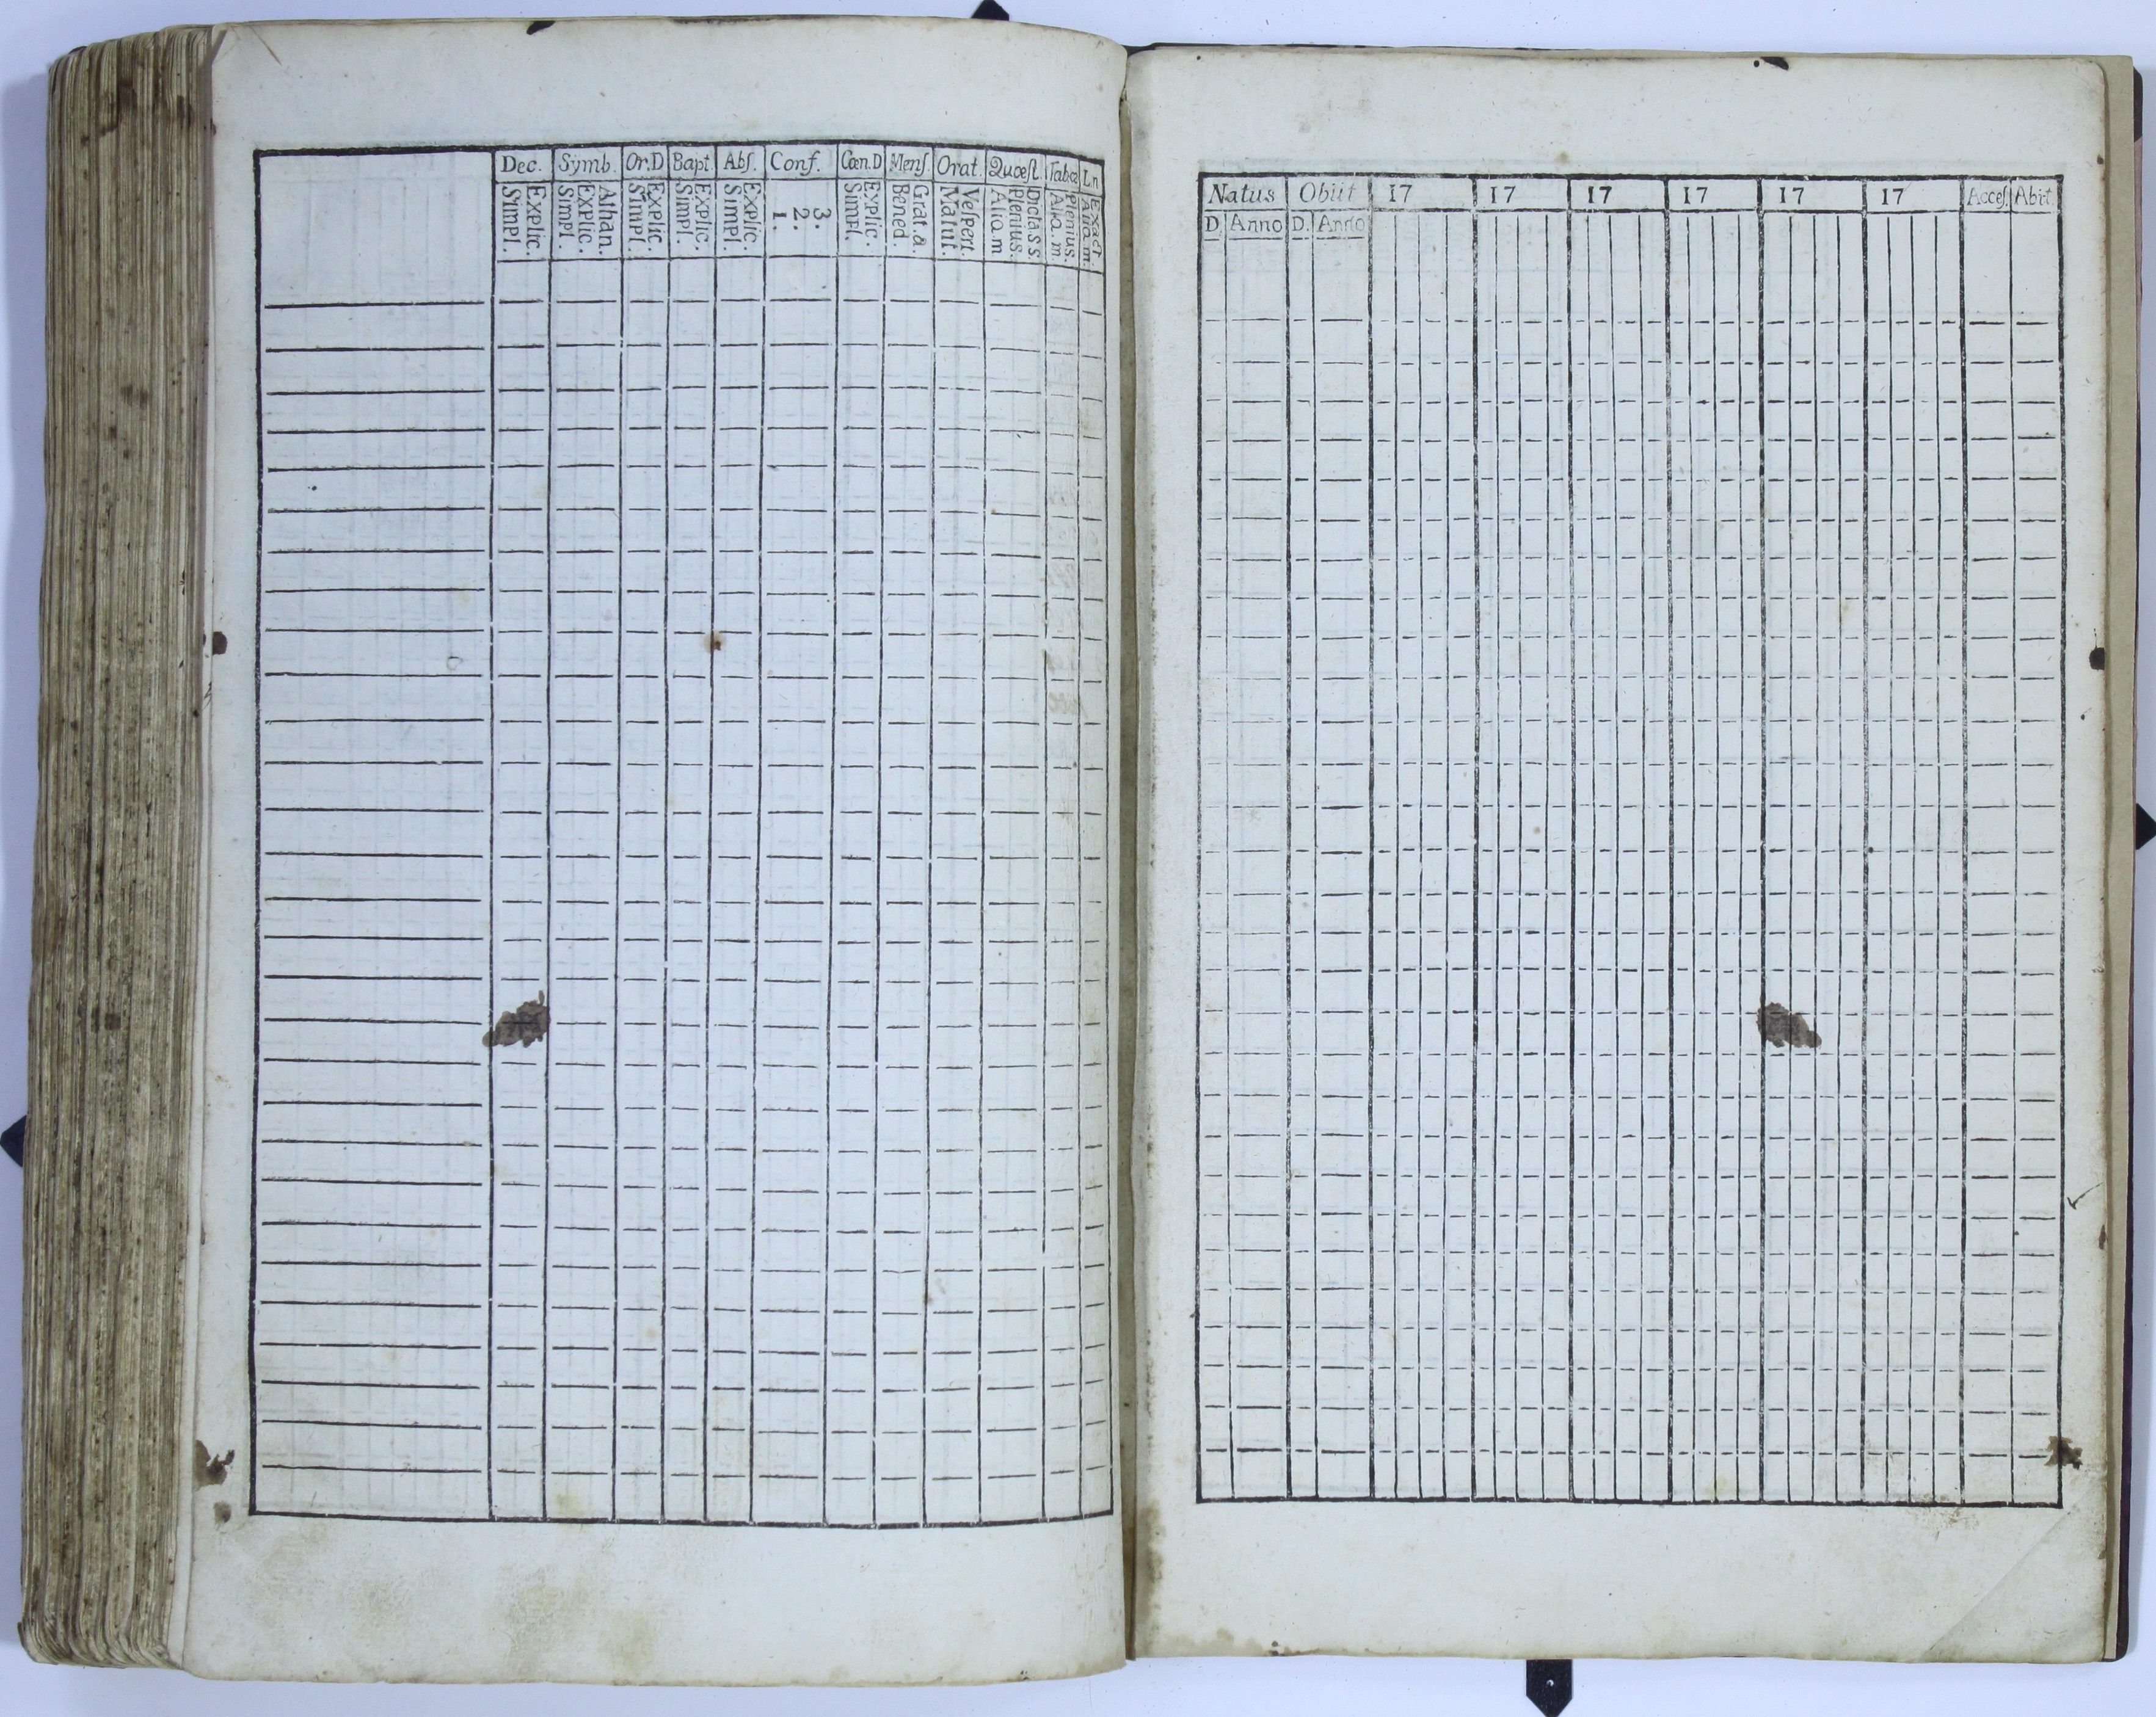 Dec. Symb. Or.D Bapt. Abſ. Conf. Cœn.D Menſ. Orat. Quœſt. Tabœ Ln
Explic. Simpl.
Athan. Explic. Simpl.
Explic. Simpl.
Explic. Simpl.
Explic. Simpl.
3. 2. 1.
Explic. Simpl.
Grat.a. Bened.
Veſpert. Matut.
Dicta s s. Plenius. Aliq.m
Plenius. Aliq.m.
Exact. Aliq.m.
Natus Obiit 17 17 17 17 17 17 Acceſ. Abit.
D. Anno D. Anno